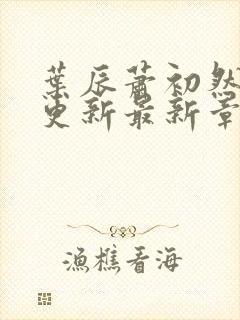 葉辰蕭初然
更新最新章
漁樵看海